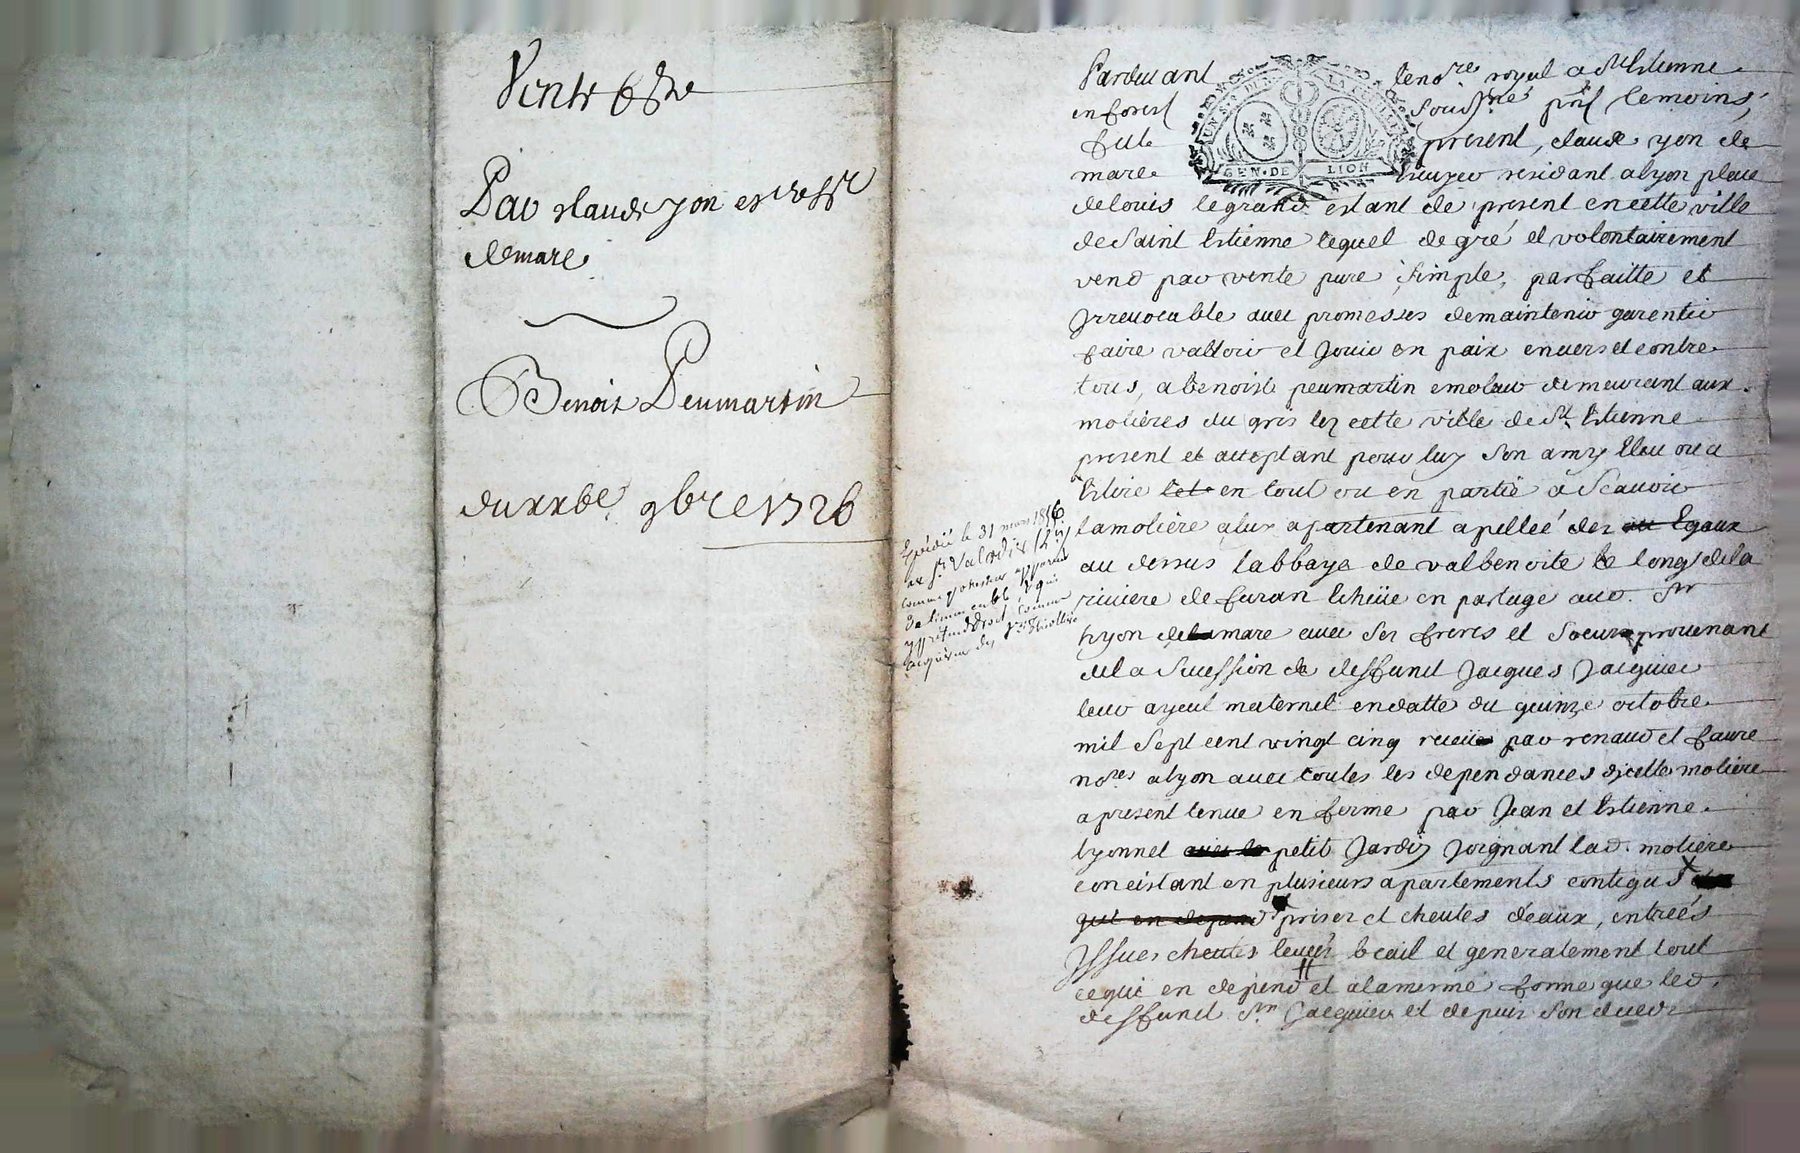 Vente
Par claude yon escuyer sr
demare
Benoist Peumartin
du xxbe 9bre 1726
Expédié le 31 mars 1816
au Sr Valadix
comme
de l'immeuble
Pardevant le nore royal a St Estienne
en forest soussné pnt temoins,
fut present, claude yon de
mare Ecuyer residant a lyon place
de louis le grand estant de present en cette ville
de Saint Estienne lequel de gré et volontairement
vend par vente pure, simple, parfaitte et
Irrevocable avec promesses de maintenir garentir
faire valloir et Jouir en paix envers et contre
tous, a benoist peumartin emoleur demeurant aux
molières du gris lez cette ville de St Estienne
present et acceptant pour luy son amy Eleu ou a
Eslire en tout ou en partie a Scavoir
la molière a luy apartenant apelleé des Egaux
au dessus labbaye de valbenoite le long de la
riviere de furan Echeüe en partage aud. Sr
hyon de mare avec ses freres et soeurs provenant
de la Sucession de deffunct Jacques Jacquier
leur ayeul maternel en datte du quinze octobre
mil Sept cent vingt cinq receu par renaud et faure
nores a lyon avec toutes les dependances d'jcelle molière
a present tenue en ferme par Jean et Estienne
lyonnet petit Jardin Joignant lad. molière
concistant en plusieurs apartements contigus
prises et cheutes d'eaux, entreés
Issues cheutes leveés bcail et generalement tout
ce qui en depend et a la mesme forme que led.
deffunct Sr Jacquier et depuis son deced
GEN. DE LION